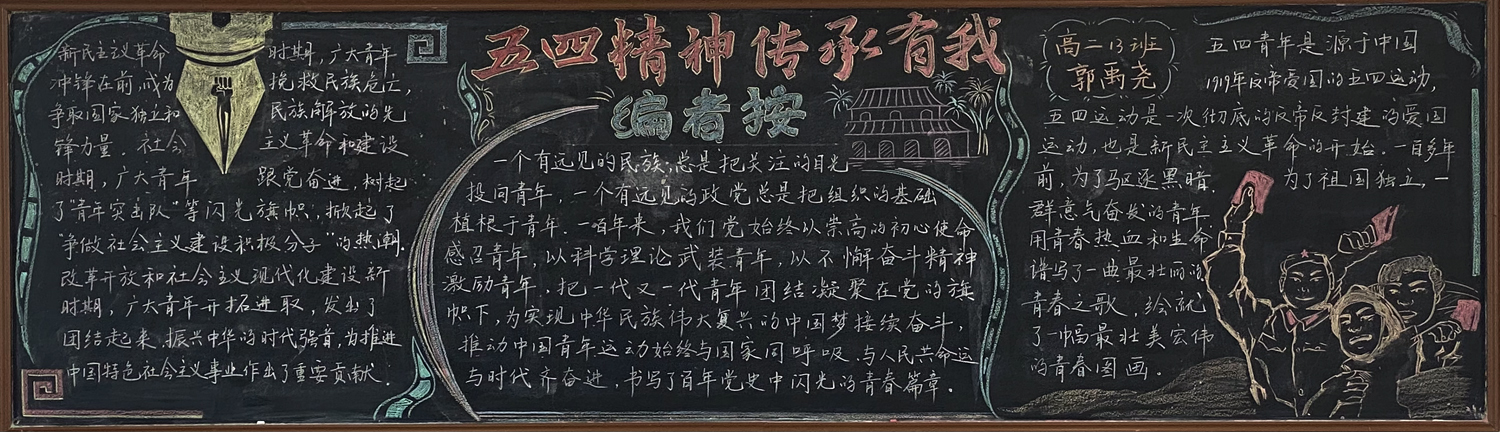 新民主义革命 时期，广大青年
冲锋在前，成为 挽救民族危亡，
争取国家独立和 民族解放的先
锋力量．社会 主义革命和建设
时期，广大青年 跟党奋进，树起
了“青年突击队”等闪光旗帜，掀起了
“争做社会主义建设积极分子”的热潮．
改革开放和社会主义现代化建设新
时期，广大青年开拓进取，发出了
团结起来，振兴中华的时代强音，为推进
中国特色社会主义事业作出了重要贡献．
五四精神传承有我
编者按
一个有远见的民族，总是把关注的目光
投向青年，一个有远见的政党总是把组织的基础
植根于青年．一百年来，我们党始终以崇高的初心使命
感召青年，以科学理论武装青年，以不懈奋斗精神
激励青年，把一代又一代青年团结凝聚在党的旗
帜下，为实现中华民族伟大复兴的中国梦接续奋斗，
推动中国青年运动始终与国家同呼吸，与人民共命运
与时代齐奋进，书写了百年党史中闪光的青春篇章．
高二13班
郭禹尧
五四青年是源于中国
1919年反帝爱国的五四运动，
五四运动是一次彻底的反帝反封建的爱国
运动，也是新民主主义革命的开始．一百多年
前，为了驱逐黑暗． 为了祖国独立，一
群意气奋发的青年
用青春热血和生命
谱写了一曲最壮丽的
青春之歌．绘就
了一幅最壮美宏伟
的青春图画．